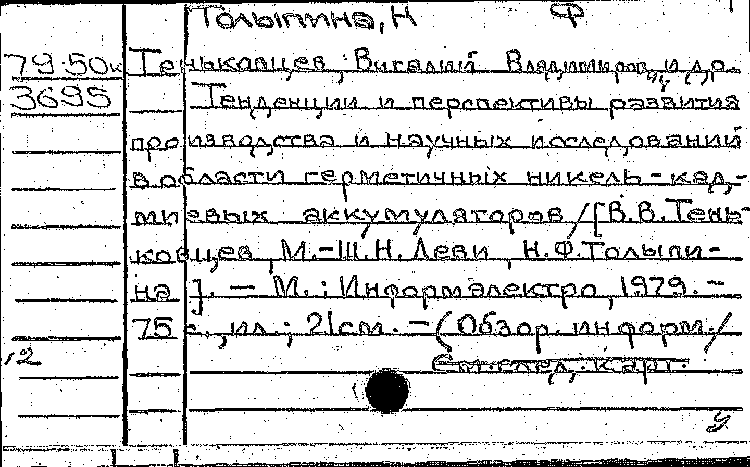 Толыпина, Н Ф
79.50к Теньковцев, Виталий Владимиров. и др.
3695 Тенденции и перспективы развития
производства и научных исследований
в области герметичных никель-кад-
миевых аккумуляторов /[В.В.Тень-
ковцев, М.-Ш.Н. Леви, Н.Ф.Толыпи-
на]. — М.: Информэлектро, 1979. —
75 с., ил.; 21см. — (Обзор. информ./
12 См.след. карт.
у